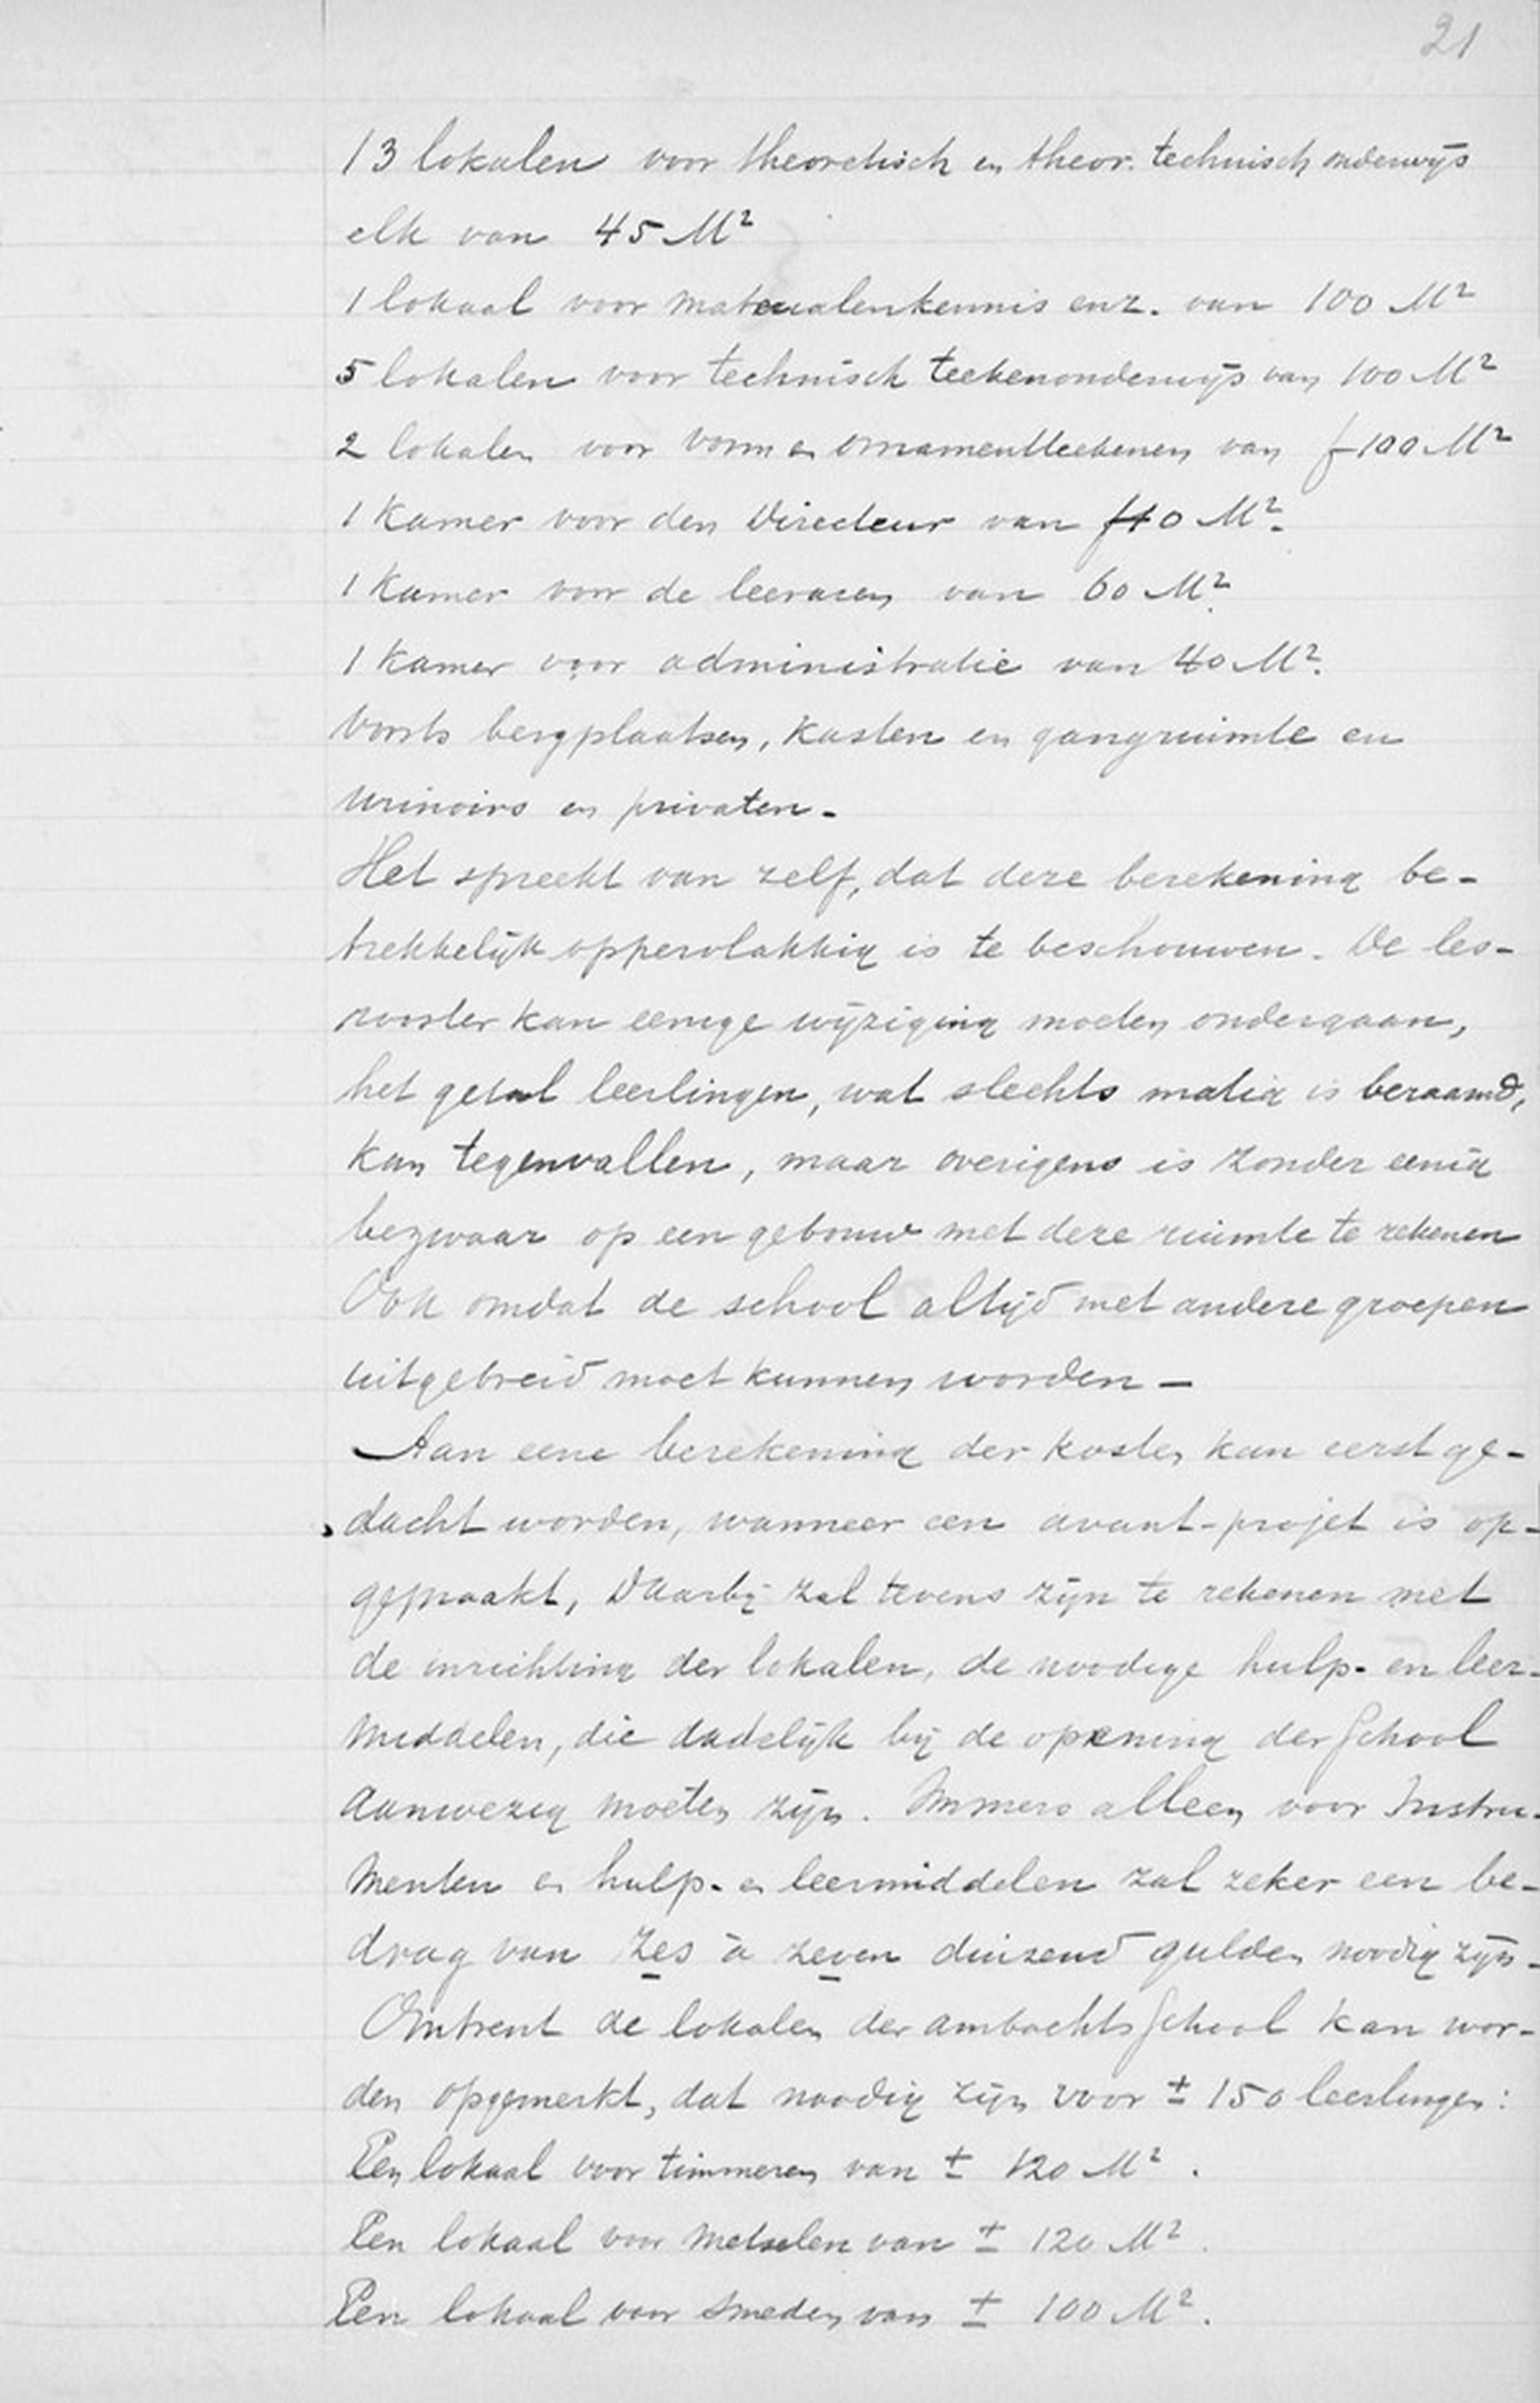 21
13 lokalen voor theoretisch en theor. technisch onderwijs
elk van 45 M²
1 lokaal voor materialenkennis enz. van 100 M²
5 lokalen voor technisch teekenonderwijs van 100 M²
2 lokalen voor vorm en ornamentteekenen van 100 M²
1 kamer voor den Directeur van 40 M².
1 kamer voor de leeraren van 60 M².
1 kamer voor administratie van 40 M².
Voorts bergplaatsen, kasten en gangruimte en
urinoirs en privaten.
Het spreekt van zelf, dat deze berekening be-
trekkelijk oppervlakkig is te beschouwen. De les-
rooster kan eenige wijziging moeten ondergaan,
het getal leerlingen, wat slechts matig is beraamd,
kan tegenvallen, maar overigens is zonder eenig
bezwaar op een gebouw met deze ruimte te rekenen
Ook omdat de school altijd met andere groepen
uitgebreid moet kunnen worden –
Aan eene berekening der kosten kan eerst ge-
dacht worden, wanneer een avant-projet is op-
gemaakt, Daarbij zal tevens zijn te rekenen met
de inrichting der lokalen, de noodige hulp- en leer-
middelen, die dadelijk bij de opening der School
aanwezig moeten zijn. Immers alleen voor Instru-
menten en hulp- en leermiddelen zal zeker een be-
drag van zes à zeven duizend gulden noodig zijn.
Omtrent de lokalen der ambachtsschool kan wor-
den opgemerkt, dat noodig zijn voor ± 150 leerlingen:
Een lokaal voor timmeren van ± 120 M².
Een lokaal voor metselen van ± 120 M².
Een lokaal voor smeden van ± 100 M².